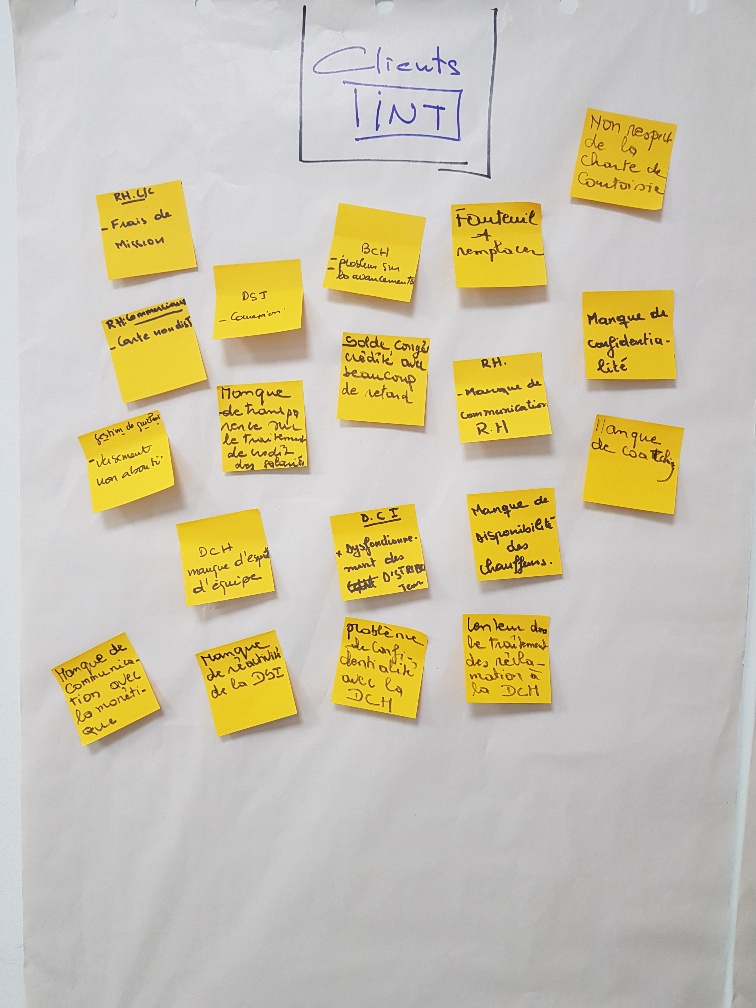 Clients
INT
Non respect
de la
charte de
Courtoisie
RH.
- Frais de
Mission
BCH
- problem sur
les avancements
Fauteuil
remplacer
DSI
RH:
- Carte non dist
Solde congé
crédité avec
beaucoup
de retard
Manque de
confidentia-
lité
RH.
- Manque de
communication
RH
Manque
de transpa
rence sur
le traitement
de crédit
des salariés
- Versement
non abouti.
Manque
de coatchig
DCH
manque d'esprit
d'équipe
D.C.I
* Dysfonctionne-
ment des
DISTRIBU
Teur
Manque de
Disponibilité
des
chauffeurs.
Manque de
Communica-
tion avec
la monéti-
que
Manque
de réactivité
de la DSI
problème
de confi-
dentialité
avec la
DCH
Lenteur dns
le traitement
des récla-
mation à
la DCH